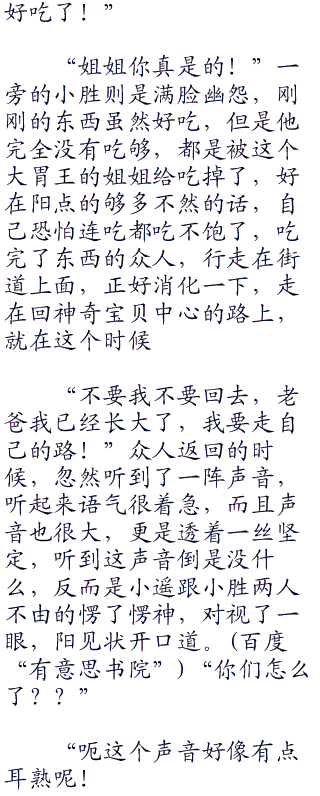 好吃了！”
“姐姐你真是的！”一
旁的小胜则是满脸幽怨，刚
刚的东西虽然好吃，但是他
完全没有吃够，都是被这个
大胃王的姐姐给吃掉了，好
在阳点的够多不然的话，自
己恐怕连吃都吃不饱了，吃
完了东西的众人，行走在街
道上面，正好消化一下，走
在回神奇宝贝中心的路上，
就在这个时候
“不要我不要回去，老
爸我已经长大了，我要走自
己的路！”众人返回的时
候，忽然听到了一阵声音，
听起来语气很着急，而且声
音也很大，更是透着一丝坚
定，听到这声音倒是没什
么，反而是小遥跟小胜两人
不由的愣了愣神，对视了一
眼，阳见状开口道。(百度
“有意思书院”)“你们怎么
了？？”
“呃这个声音好像有点
耳熟呢！